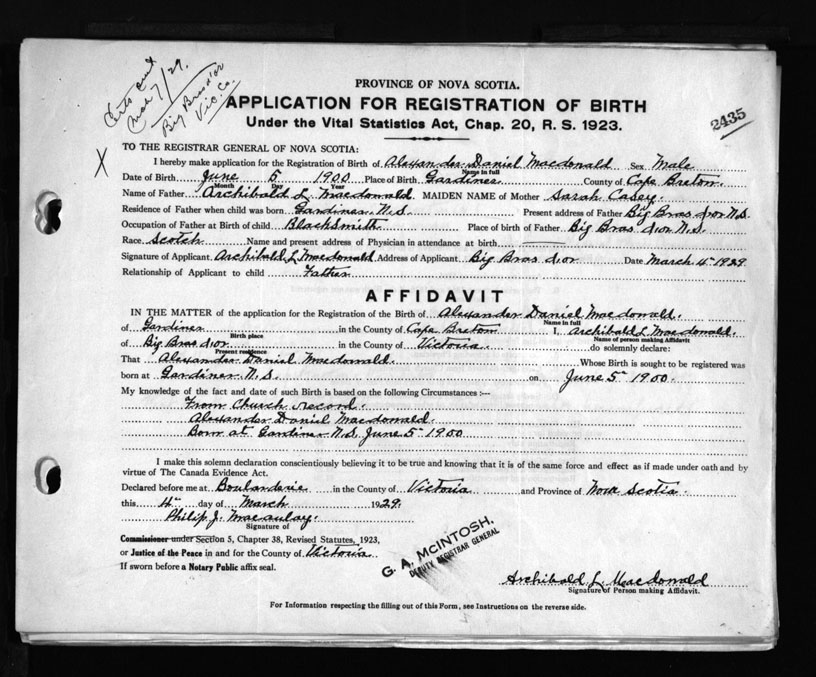 Certs and
Mar 7/29.
Big Bras d'or
Vic. Co.
PROVINCE OF NOVA SCOTIA.
APPLICATION FOR REGISTRATION OF BIRTH
Under the Vital Statistics Act, Chap. 20, R. S. 1923.
2435
TO THE REGISTRAR GENERAL OF NOVA SCOTIA:
X
I hereby make application for the Registration of Birth of Alexander Daniel Macdonald Sex Male
Name in full
Date of Birth June 5 1900 Place of Birth Gardiner County of Cape Breton.
Month Day Year
Name of Father Archibald L. Macdonald. MAIDEN NAME of Mother Sarah Casey.
Residence of Father when child was born Gardiner N.S. Present address of Father Big Bras d'or N.S.
Occupation of Father at Birth of child Blacksmith Place of birth of Father Big Bras d'or N.S.
Race Scotch Name and present address of Physician in attendance at birth
Signature of Applicant Archibald L Macdonald Address of Applicant Big Bras d'or Date March 4th 1929
Relationship of Applicant to child Father
AFFIDAVIT
IN THE MATTER of the application for the Registration of the Birth of Alexander Daniel Macdonald.
Name in full
of Gardiner in the County of Cape Breton I, Archibald L. Macdonald.
Birth place Name of person making Affidavit
of Big Bras d'or in the County of Victoria do solemnly declare:
Present residence
That Alexander Daniel Macdonald. Whose Birth is sought to be registered was
born at Gardiner N.S. on June 5th 1900.
My knowledge of the fact and date of such Birth is based on the following Circumstances :—
From Church record.
Alexander Daniel Macdonald.
Born at Gardiner N.S. June 5th 1900
I make this solemn declaration conscientiously believing it to be true and knowing that it is of the same force and effect as if made under oath and by
virtue of The Canada Evidence Act.
Declared before me at Boulardarie in the County of Victoria and Province of Nova Scotia.
this 4th day of March 1929.
Philip J. Macaulay.
Signature of
Commissioner under Section 5, Chapter 38, Revised Statutes, 1923,
or Justice of the Peace in and for the County of Victoria
If sworn before a Notary Public affix seal.
G. A. McINTOSH,
DEPUTY REGISTRAR GENERAL
Archibald L. Macdonald
Signature of Person making Affidavit.
For Information respecting the filling out of this Form, see Instructions on the reverse side.